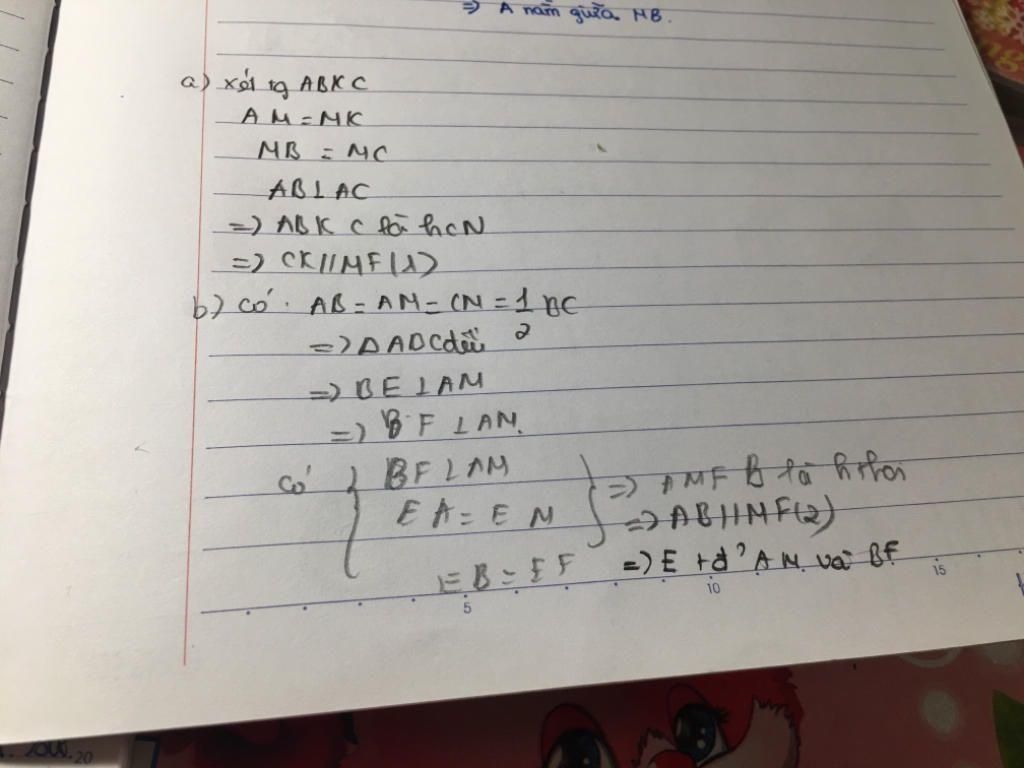 => A nằm giữa MB.
a) xét tg ABKC
AM = MK
MB = MC
AB ⊥ AC
=> ABKC là hcN
=> CK // MF (1)
b) Có: AB = AM = CM = 1/2 BC
=> Δ ABC đều
=> BE ⊥ AM
=> BF ⊥ AM.
Có { BF ⊥ AM } => AMFB là hthoi
EA = EM => AB // MF (2)
EB = EF => E tđ' AM và BF
5 10 15
20